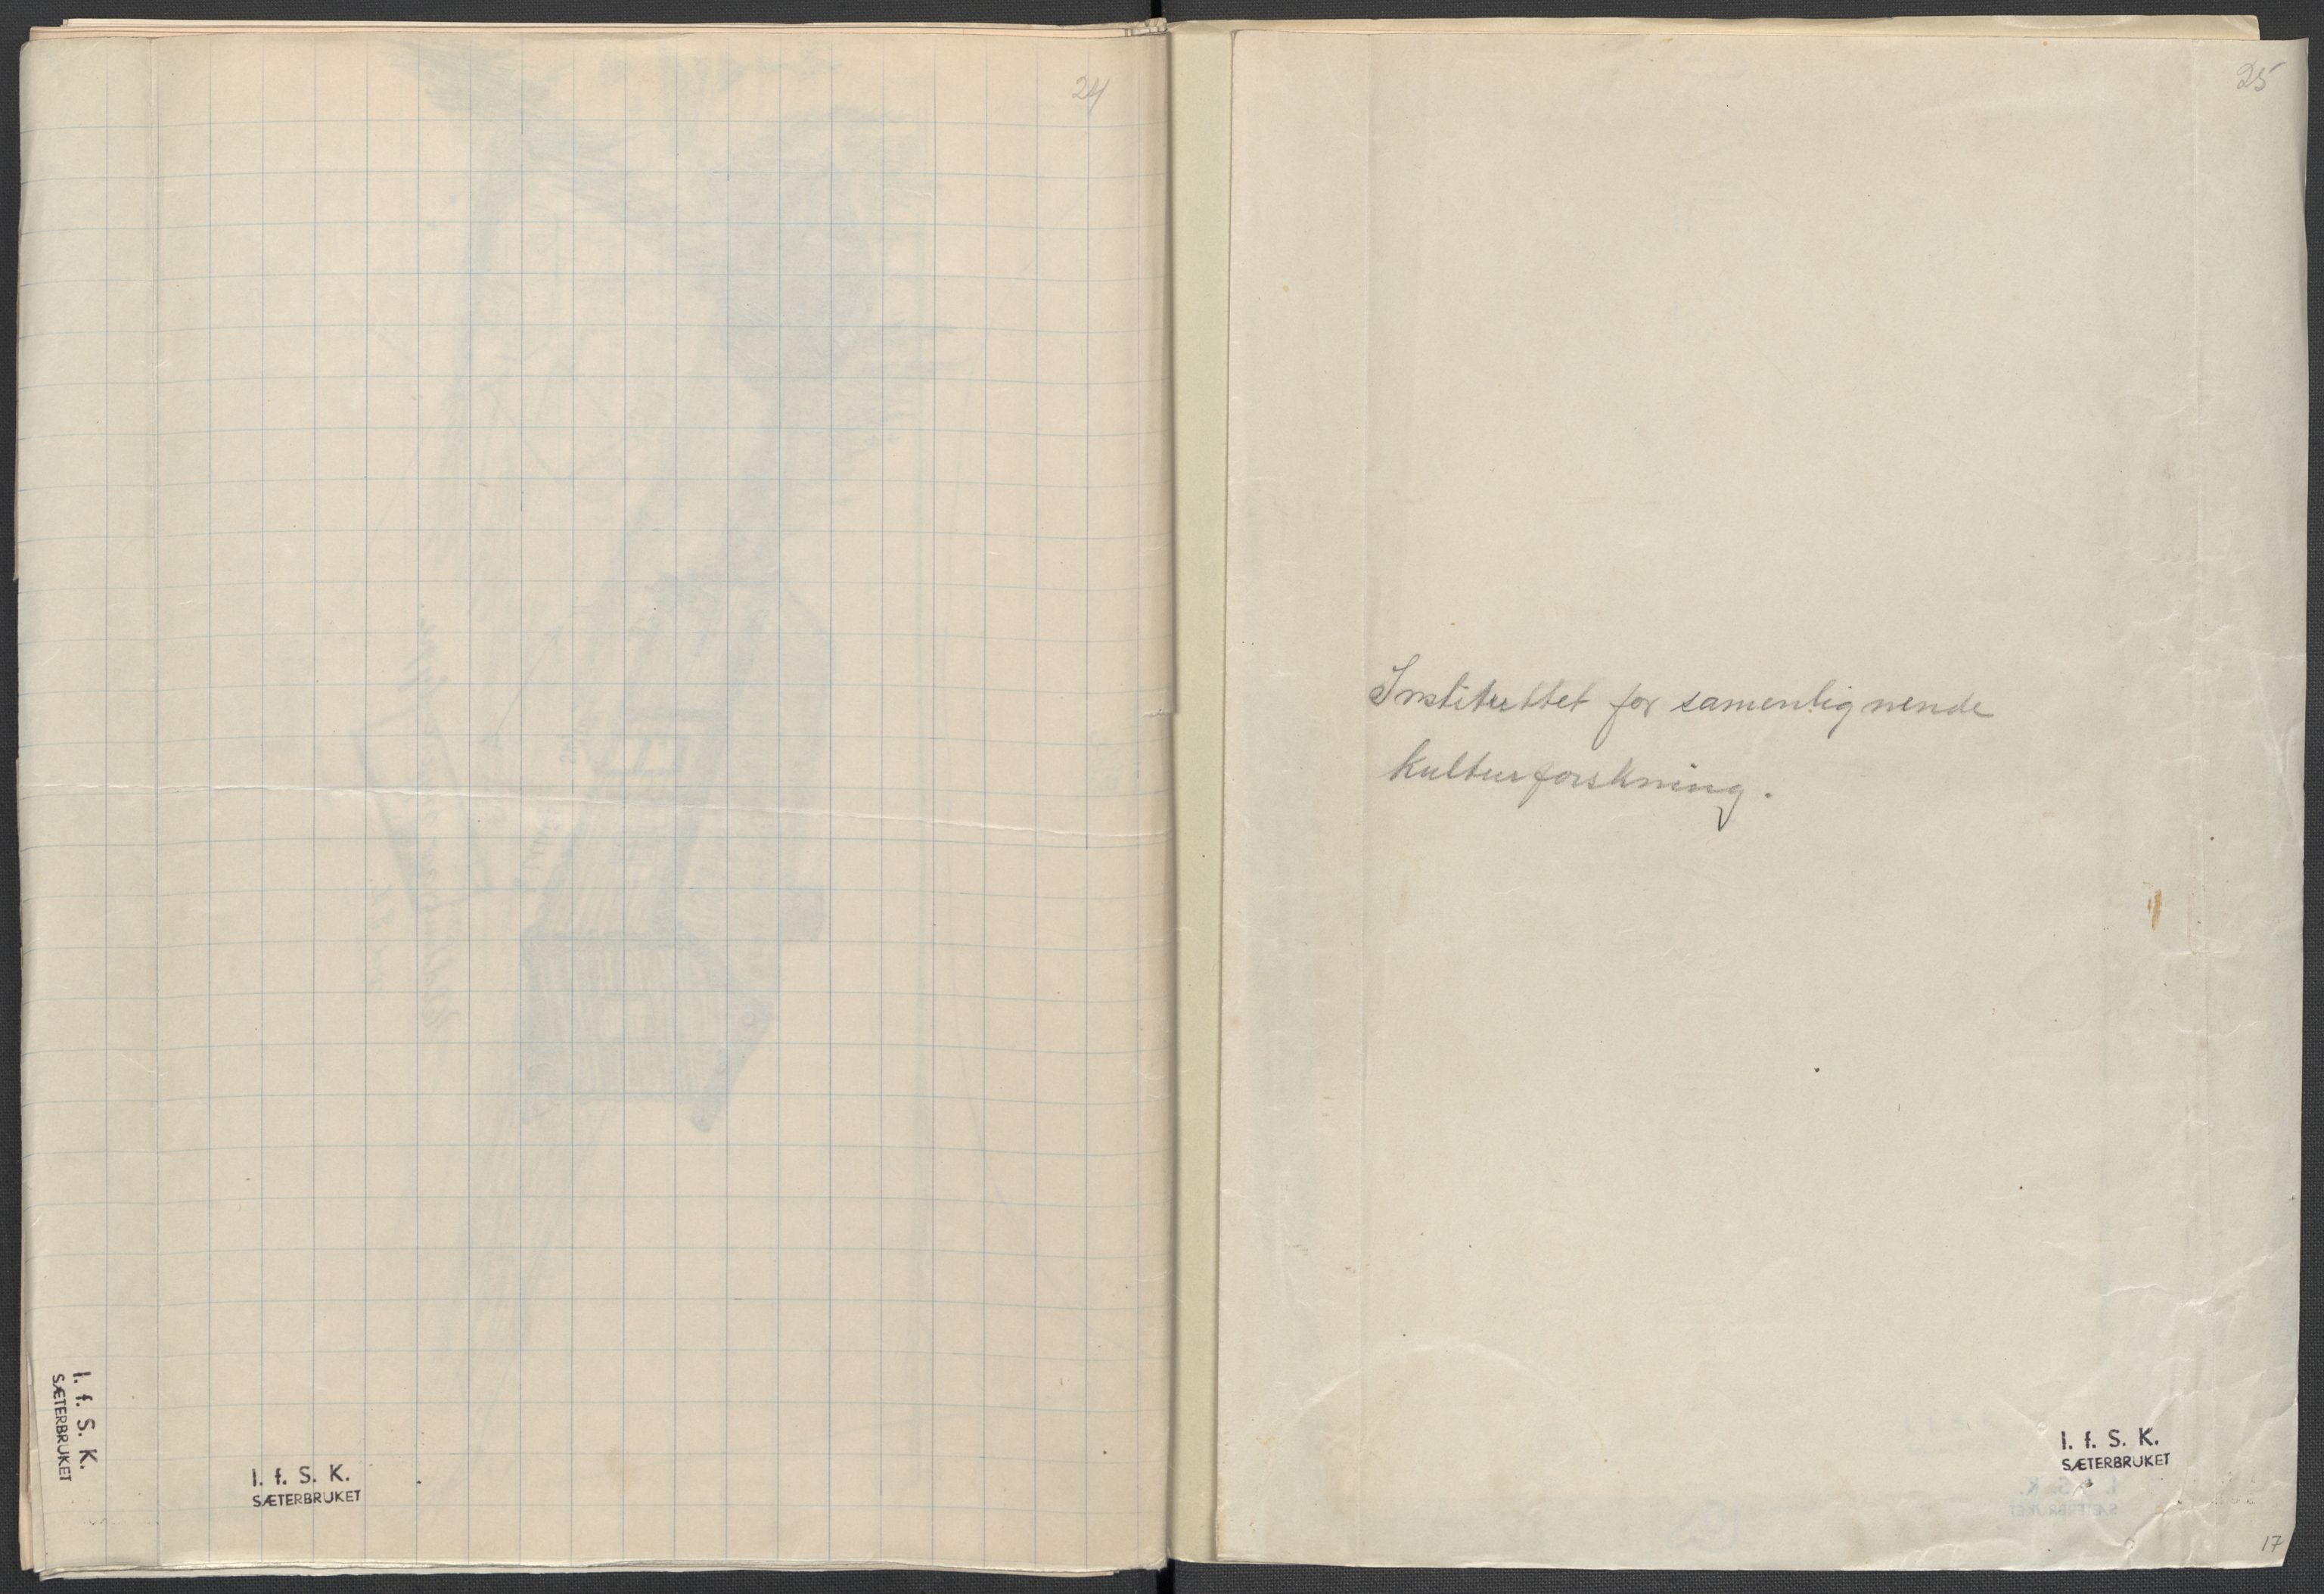 24
I. f. S. K.
SÆTERBRUKET
I. f. S. K.
SÆTERBRUKET
25
Instituttet for samenlignende
kulturforskning.
I. f. S. K.
SÆTERBRUKET
17